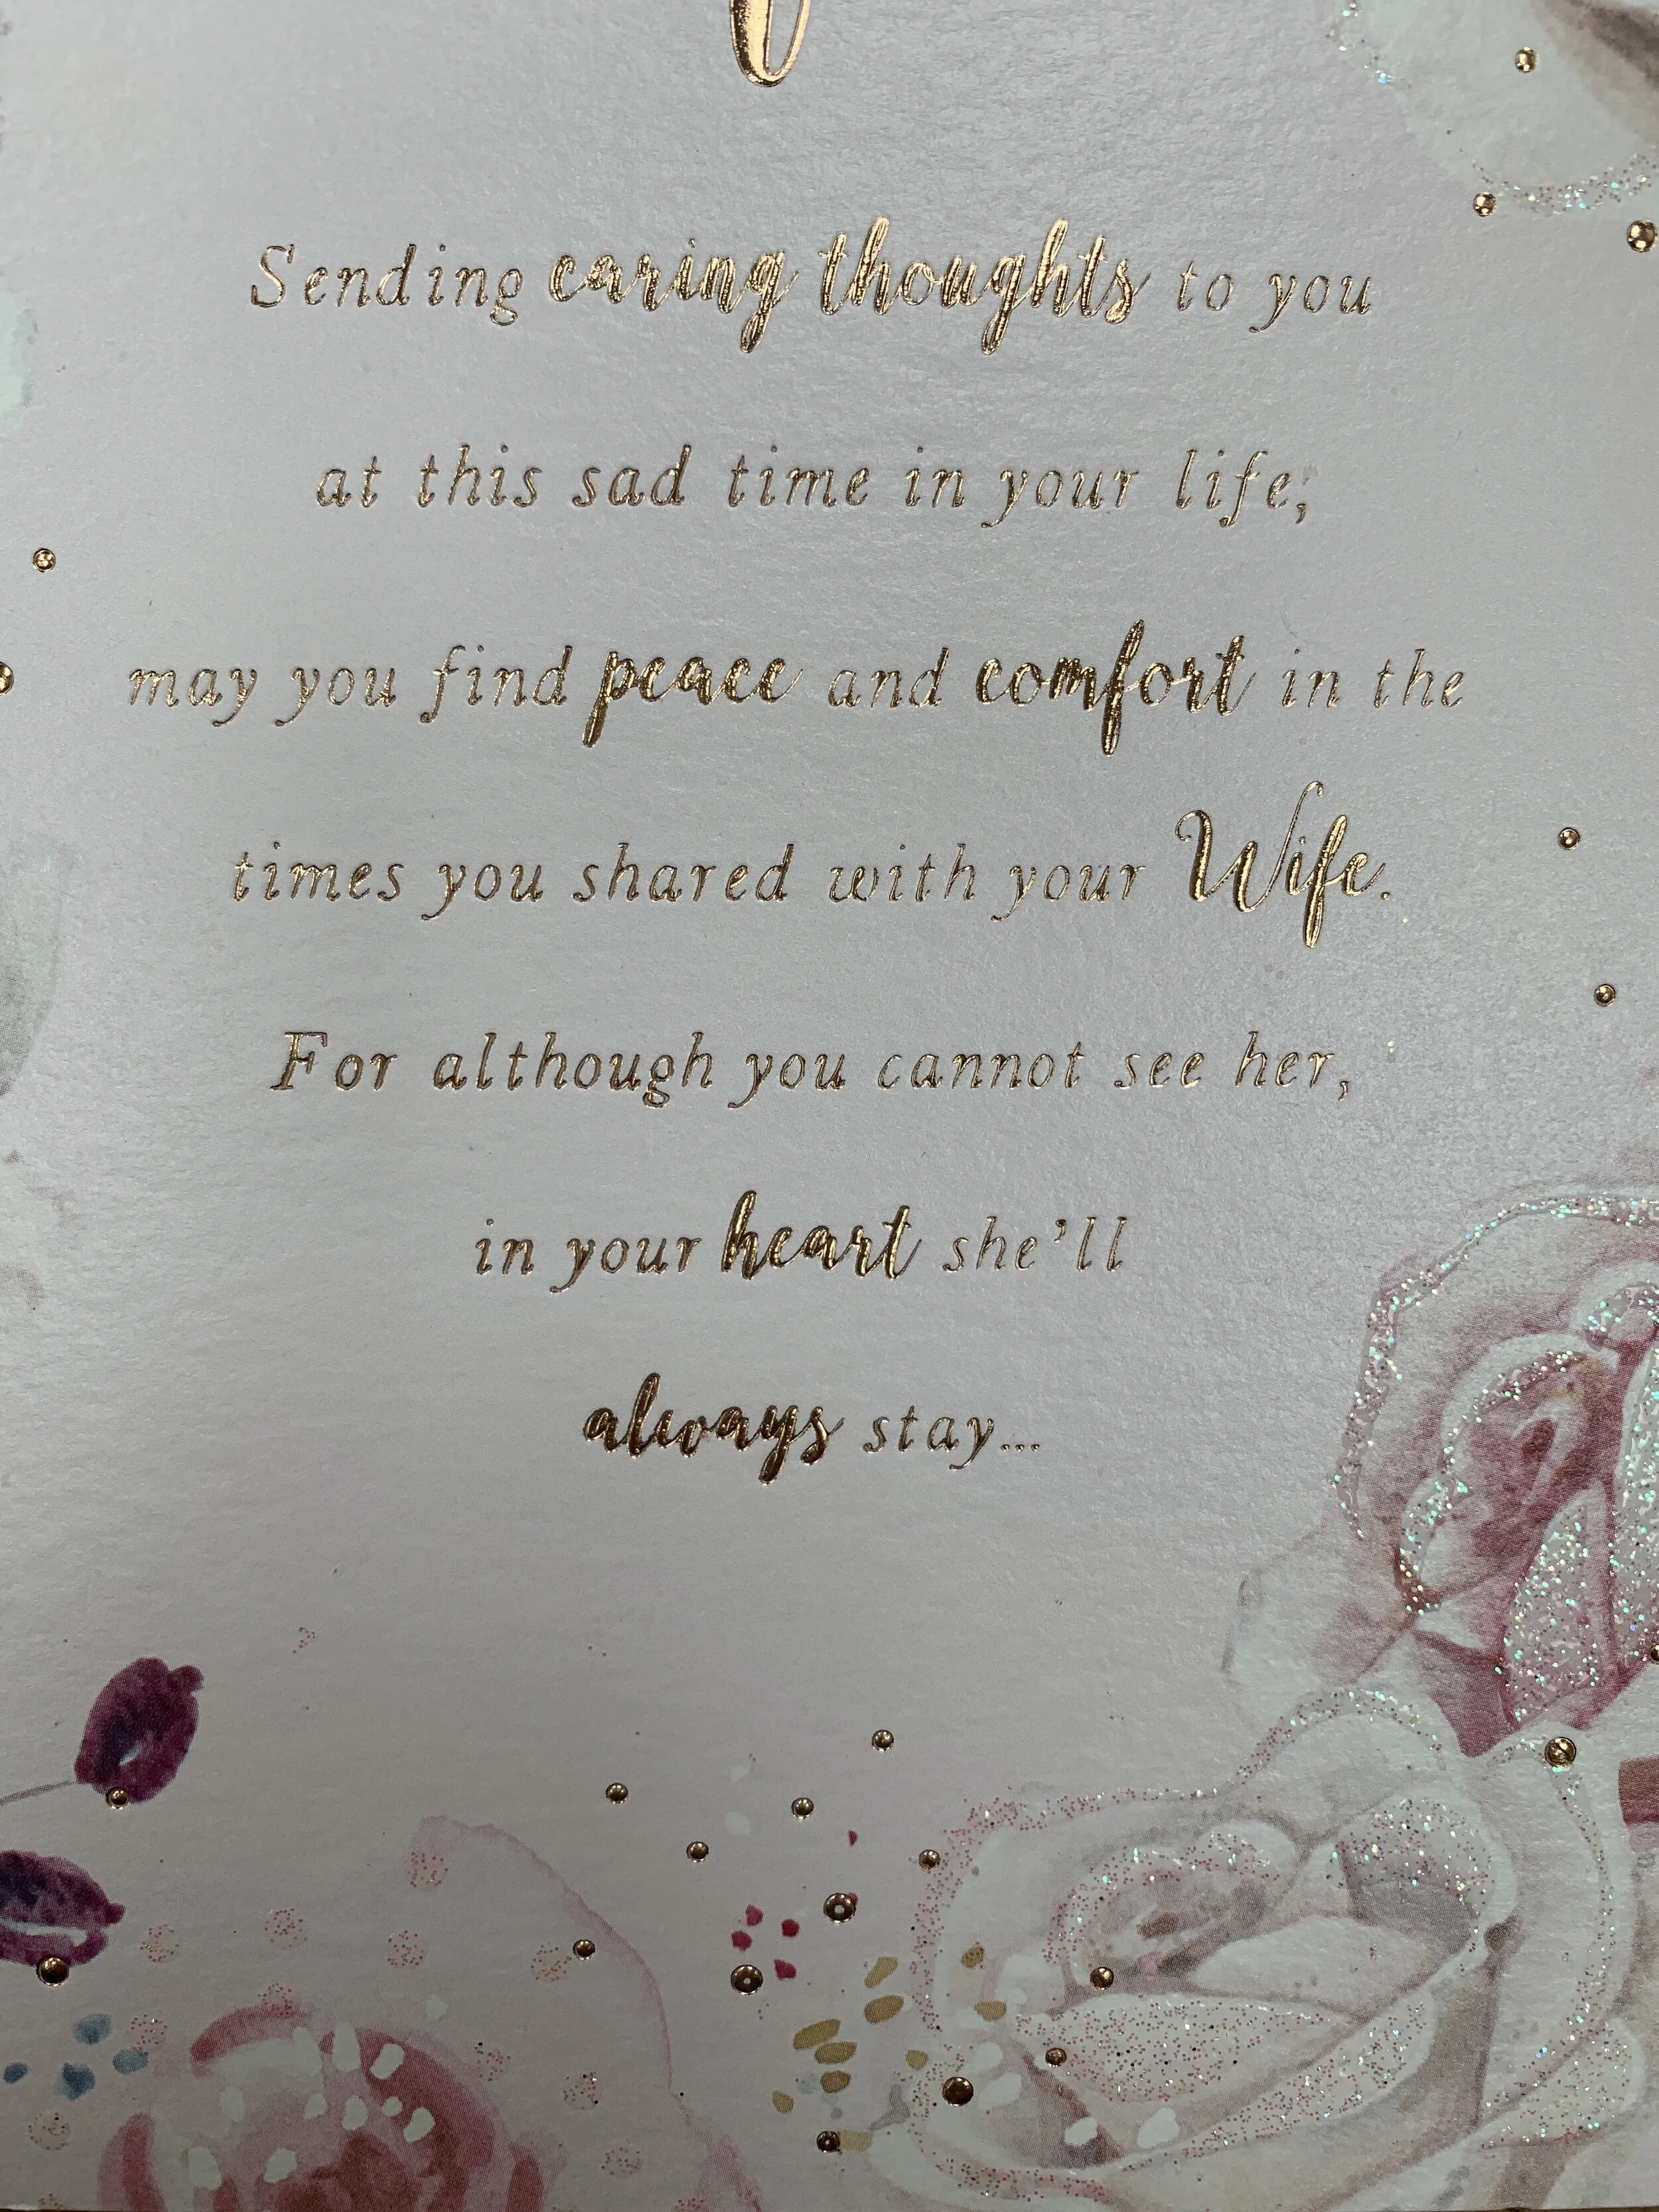 Sending caring thoughts to you
at this sad time in your life,
may you find peace and comfort in the
times you shared with your Wife.
For although you cannot see her,
in your heart she'll
always stay...